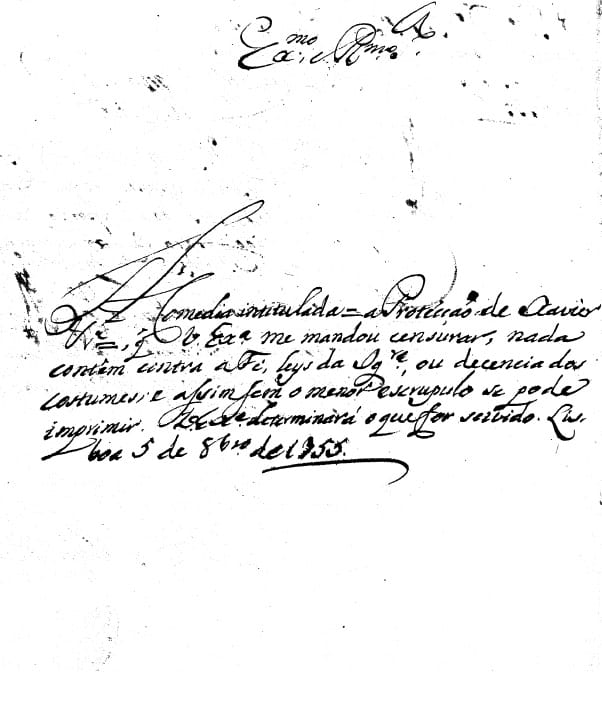 Ex.mo e Rmo S.
A Comedia intitulada = a Protecçaõ de Clavier
, q̃ V. Exa me mandou censurar, nada
contém contra a Fé, leys da Igra, ou decencia dos
costumes; e assim sem o menor escrupulo se pode
imprimir. V. Exa determinará o que for servido. Lis-
boa 5 de 8bro de 1755.